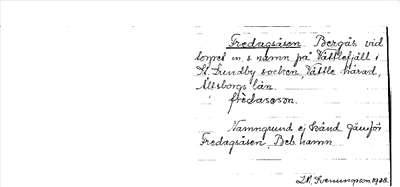 Fredagsåsen. Bergås vid
torpet m. s. namn på Vättlefjäll i
St. Lundby socken, Vättle härad,
Älvsborgs län.
frédasåsən.
Namngrund ej känd jämför
Fredagsåsen, Beb. namn
1928.